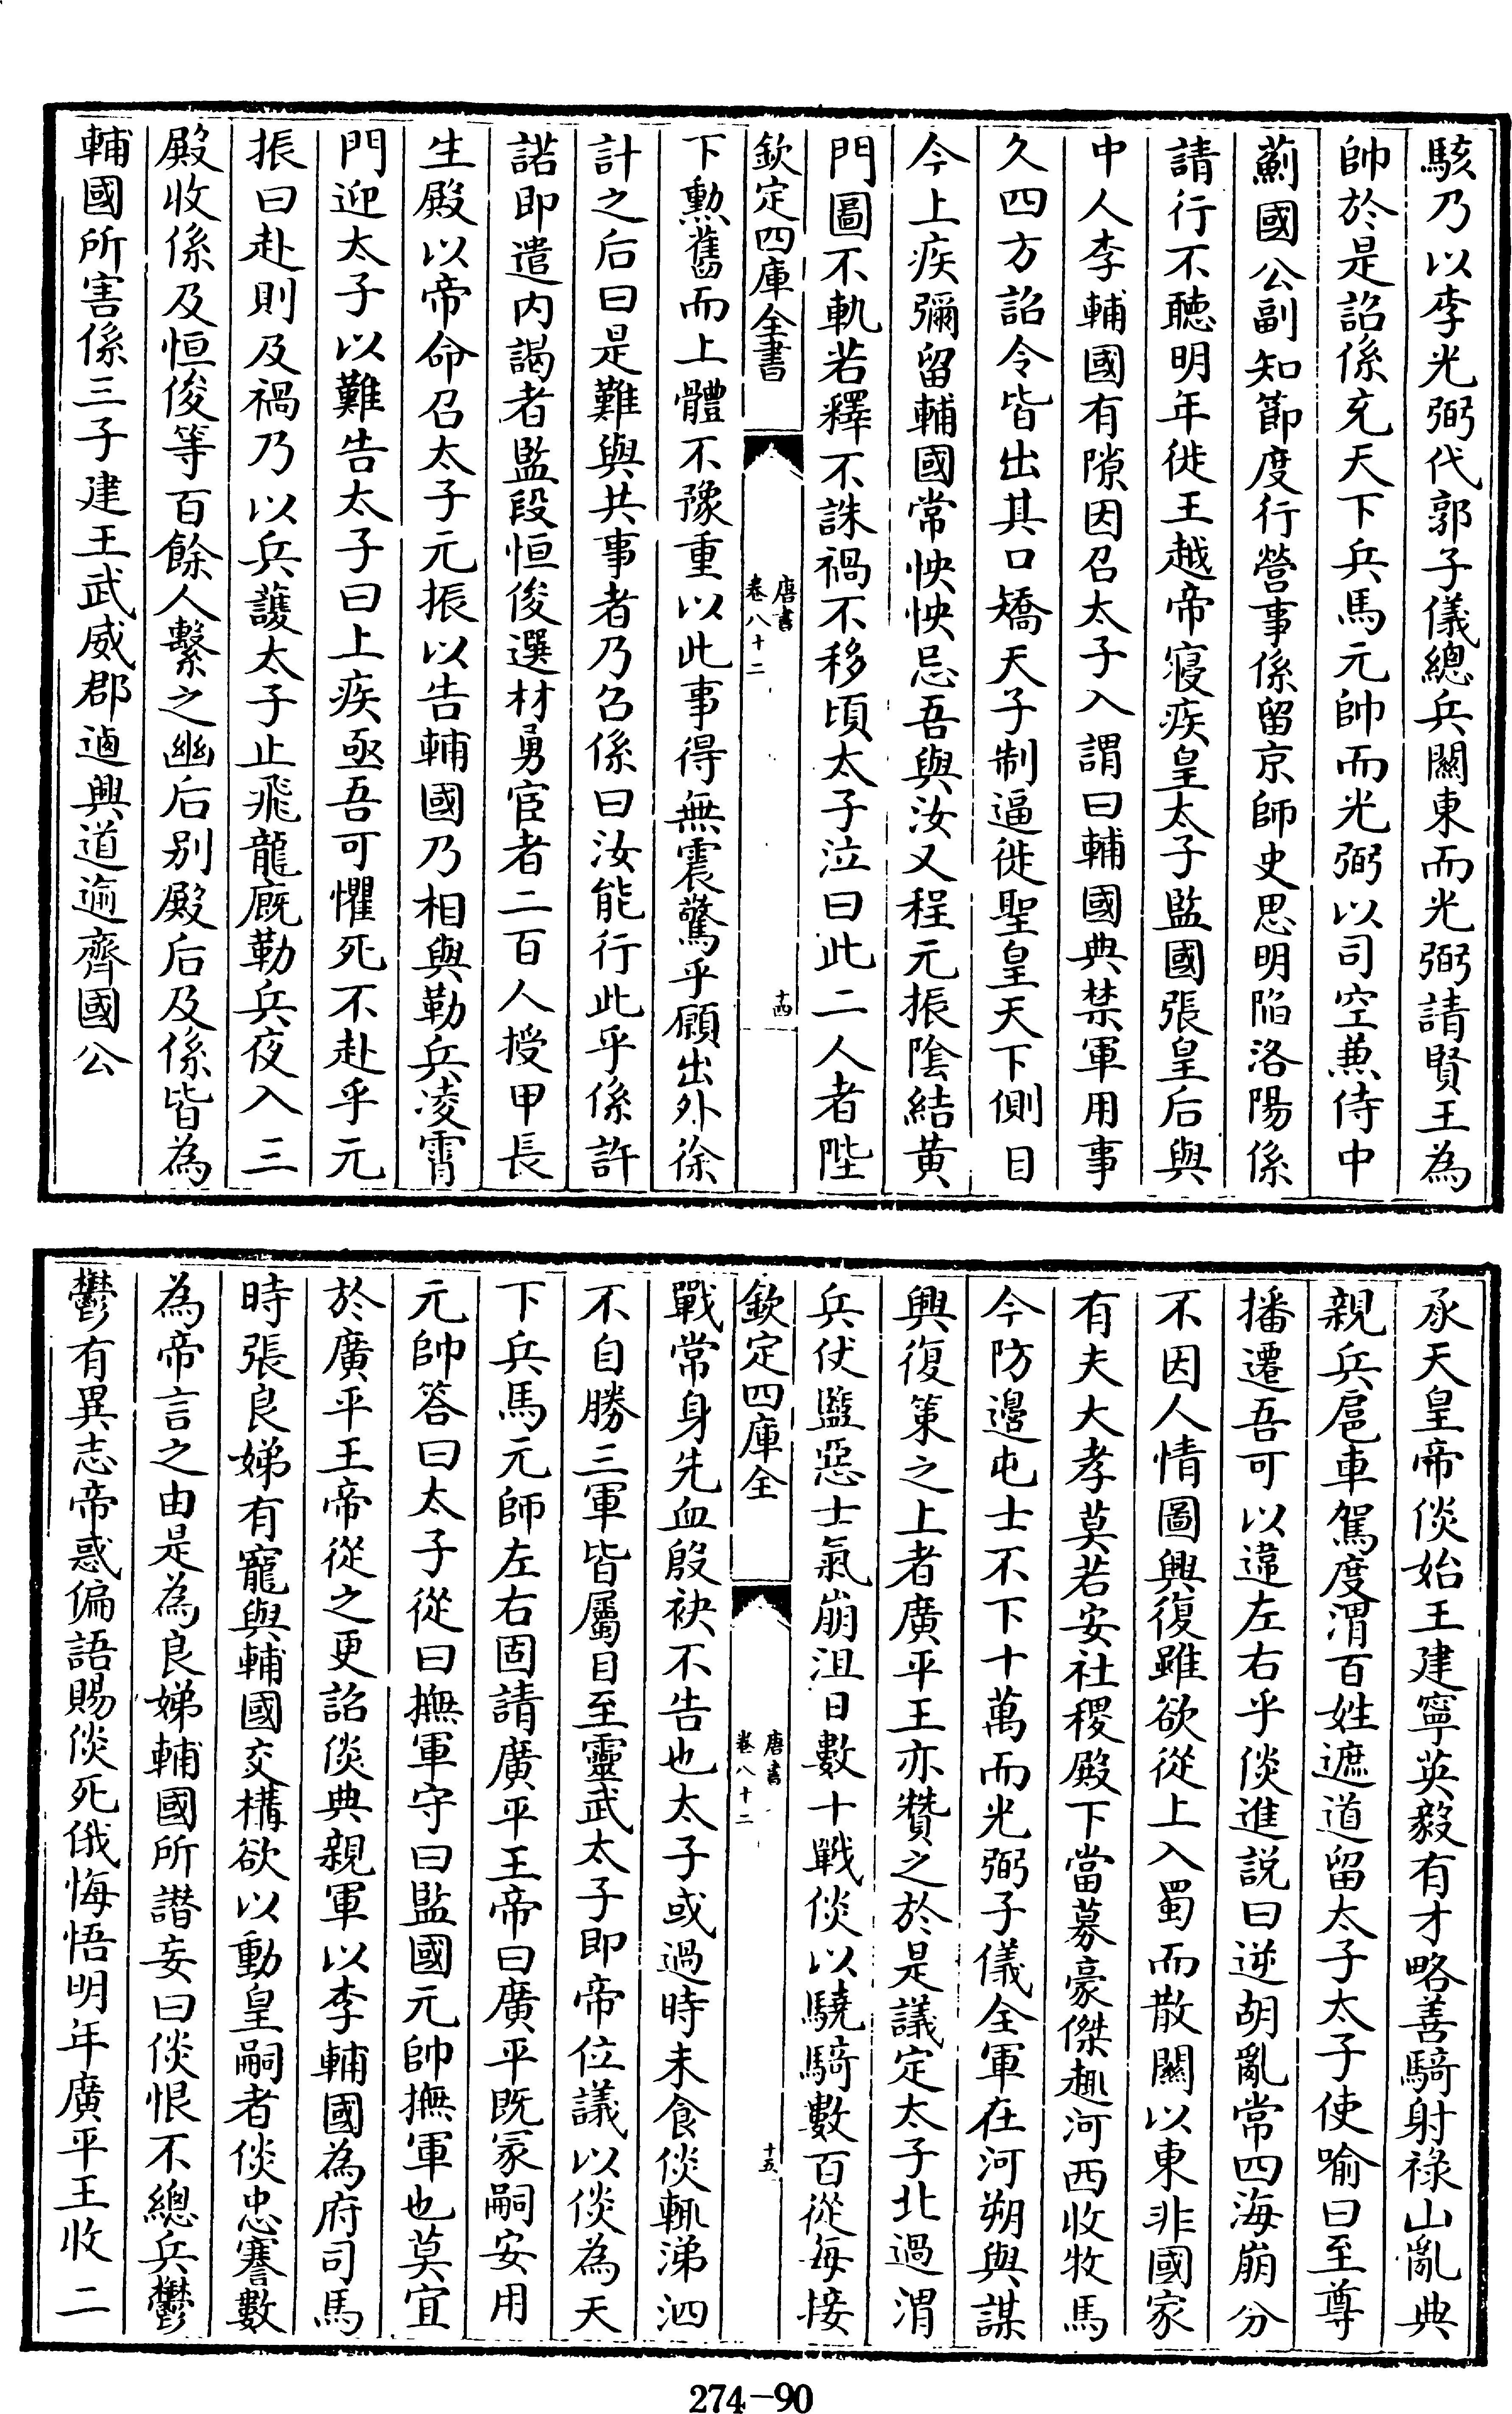 駭乃以李光弼代郭子儀總兵關東而光弼請賢王為
帥於是詔係充天下兵馬元帥而光弼以司空兼侍中
薊國公副知節度行營事係留京師史思明陷洛陽係
請行不聽明年徙王越帝寢疾皇太子監國張皇后與
中人李輔國有隙因召太子入謂曰輔國典禁軍用事
久四方詔令皆出其口矯天子制逼徙聖皇天下側目
今上疾彌留輔國常怏怏忌吾與汝又程元振陰結黄
門圖不軌若釋不誅禍不移頃太子泣曰此二人者陛
欽定四庫全書
唐書
卷八十二
十四
下勲舊而上體不豫重以此事得無震驚乎願出外徐
計之后曰是難與共事者乃召係曰汝能行此乎係許
諾即遣内謁者監段恒俊選材勇宦者二百人授甲長
生殿以帝命召太子元振以告輔國乃相與勒兵凌霄
門迎太子以難告太子曰上疾亟吾可懼死不赴乎元
振曰赴則及禍乃以兵護太子止飛龍廐勒兵夜入三
殿收係及恒俊等百餘人繫之幽后别殿后及係皆為
輔國所害係三子建王武威郡逌興道逾齊國公
承天皇帝倓始王建寧英毅有才略善騎射禄山亂典
親兵扈車駕度渭百姓遮道留太子太子使喻曰至尊
播遷吾可以違左右乎倓進説曰逆胡亂常四海崩分
不因人情圖興復雖欲從上入蜀而散關以東非國家
有夫大孝莫若安社稷殿下當募豪傑趣河西收牧馬
今防邊屯士不下十萬而光弼子儀全軍在河朔與謀
興復策之上者廣平王亦贊之於是議定太子北過渭
兵仗盬惡士氣崩沮日數十戰倓以驍騎數百從每接
欽定四庫全
唐書
卷八十二
十五
戰常身先血殷袂不告也太子或過時未食倓輒涕泗
不自勝三軍皆屬目至靈武太子即帝位議以倓為天
下兵馬元師左右固請廣平王帝曰廣平既冢嗣安用
元帥答曰太子從曰撫軍守曰監國元帥撫軍也莫宜
於廣平王帝從之更詔倓典親軍以李輔國為府司馬
時張良娣有寵與輔國交構欲以動皇嗣者倓忠謇數
為帝言之由是為良娣輔國所譖妄曰倓恨不總兵鬱
鬱有異志帝惑偏語賜倓死俄悔悟明年廣平王收二
274-90